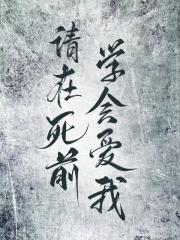 请在死前
学会爱我